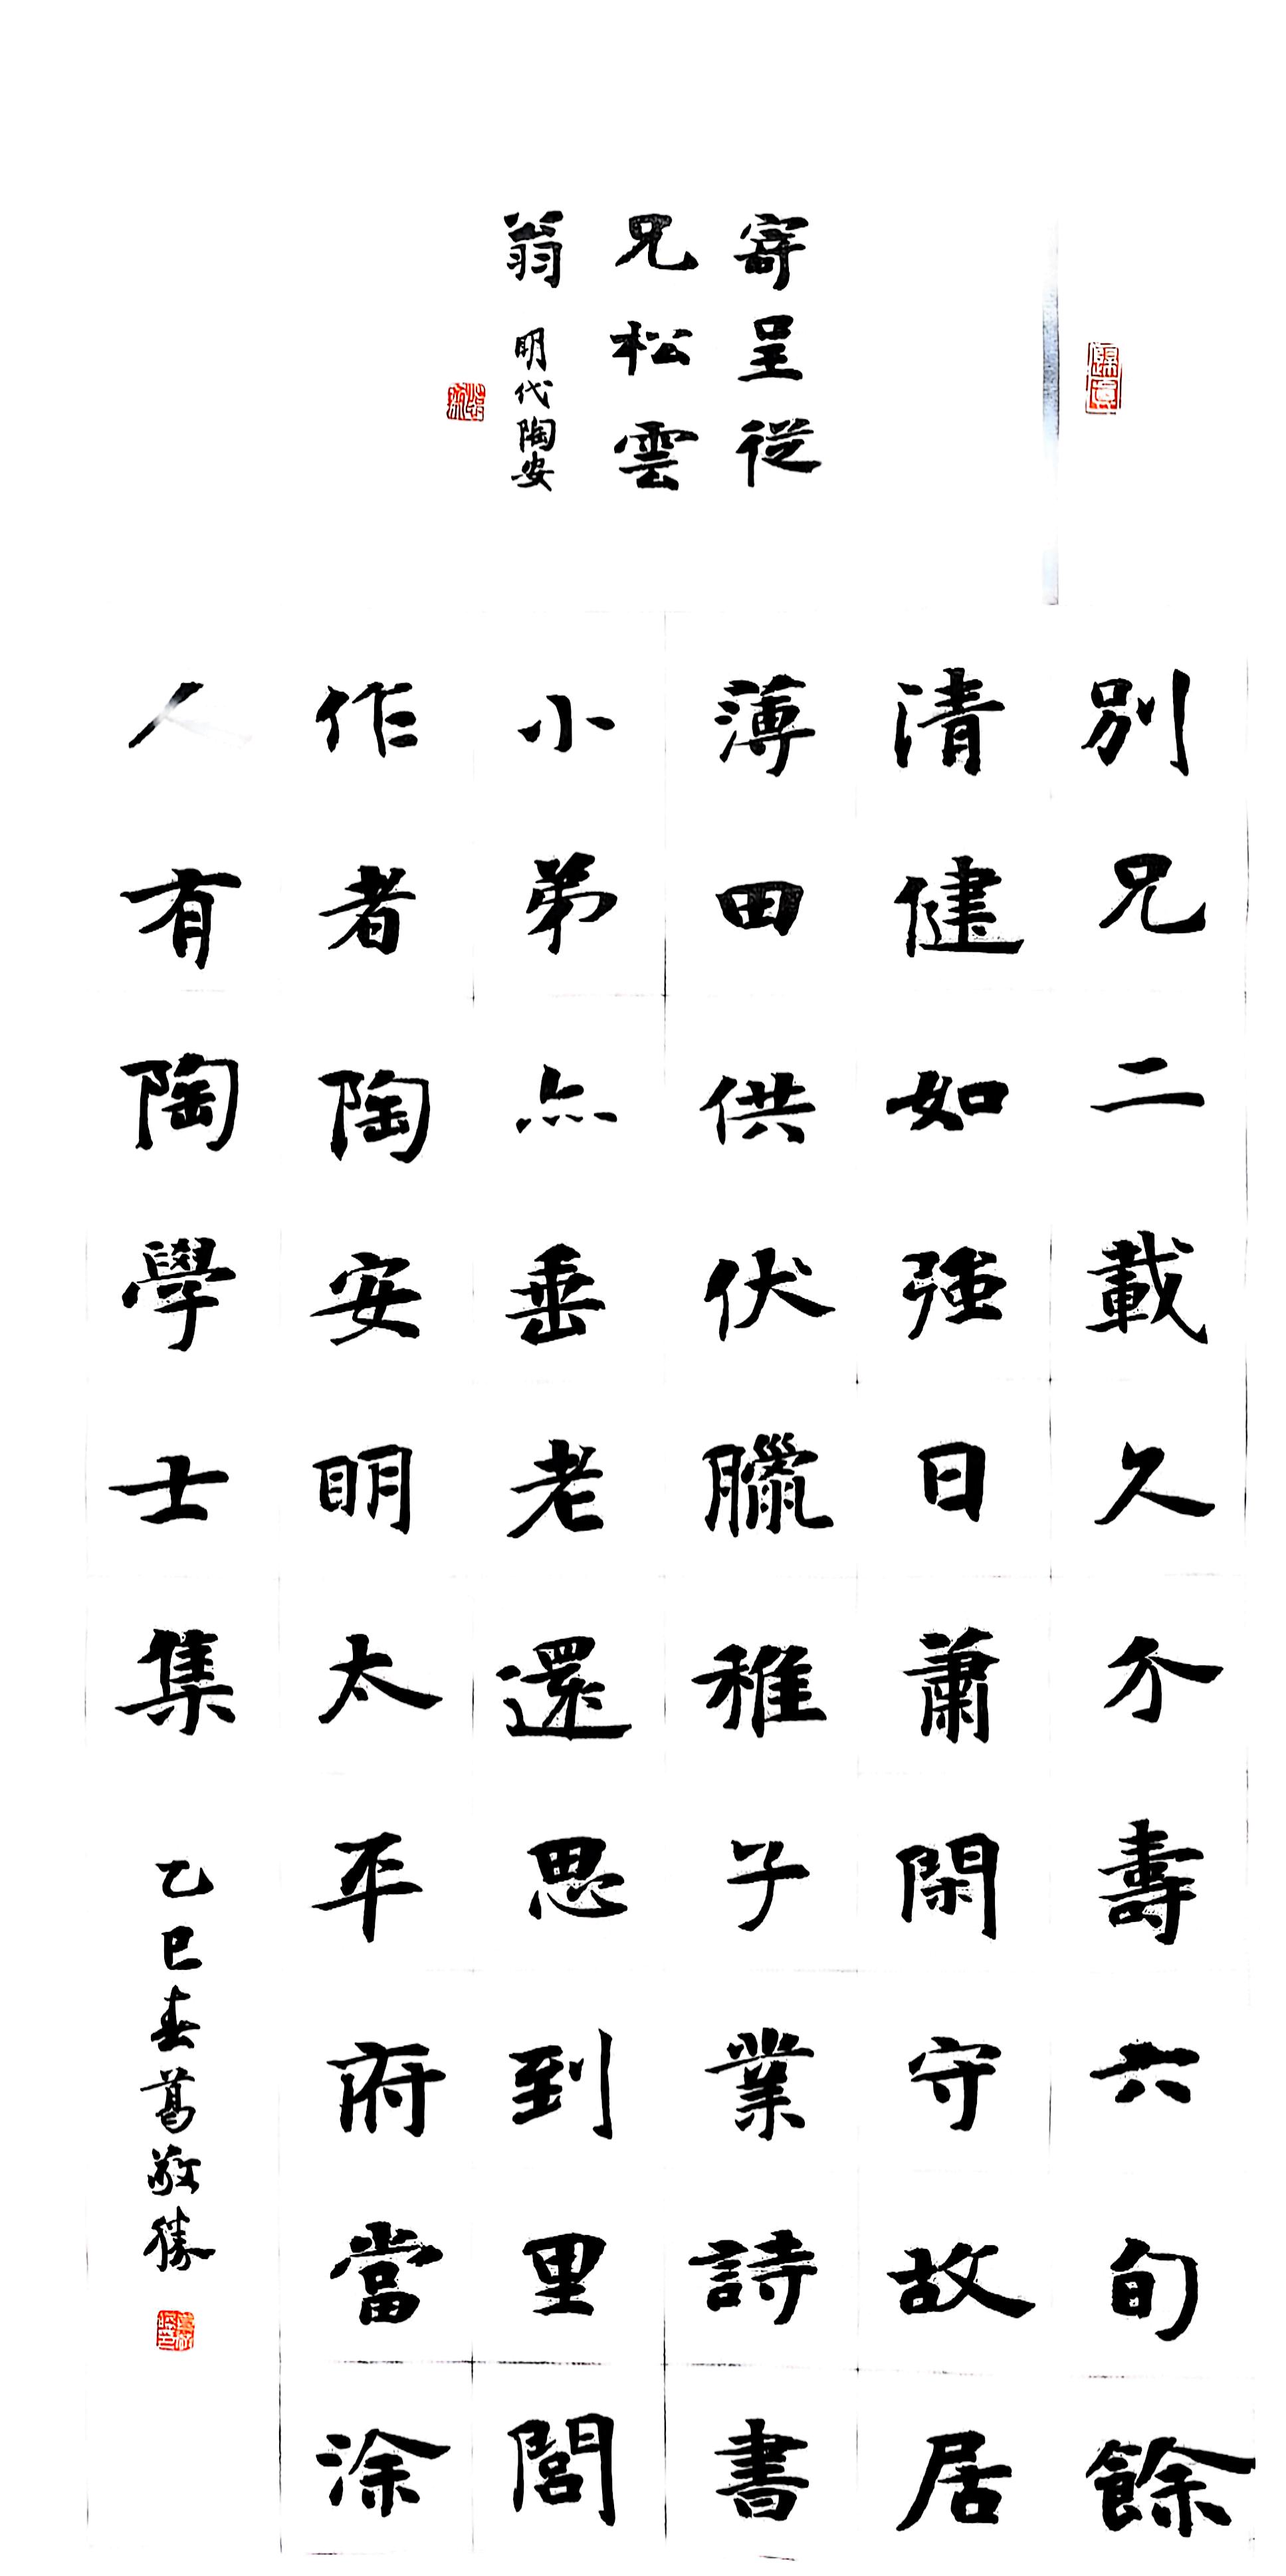 寄呈從
兄松雲
翁 明代陶安
別兄二載久介壽六旬餘
清健如強日蕭閑守故居
薄田供伏臘稚子業詩書
小弟点垂老還思到里閭
作者陶安明太平府當涂
人有陶學士集 乙巳春葛敬勝